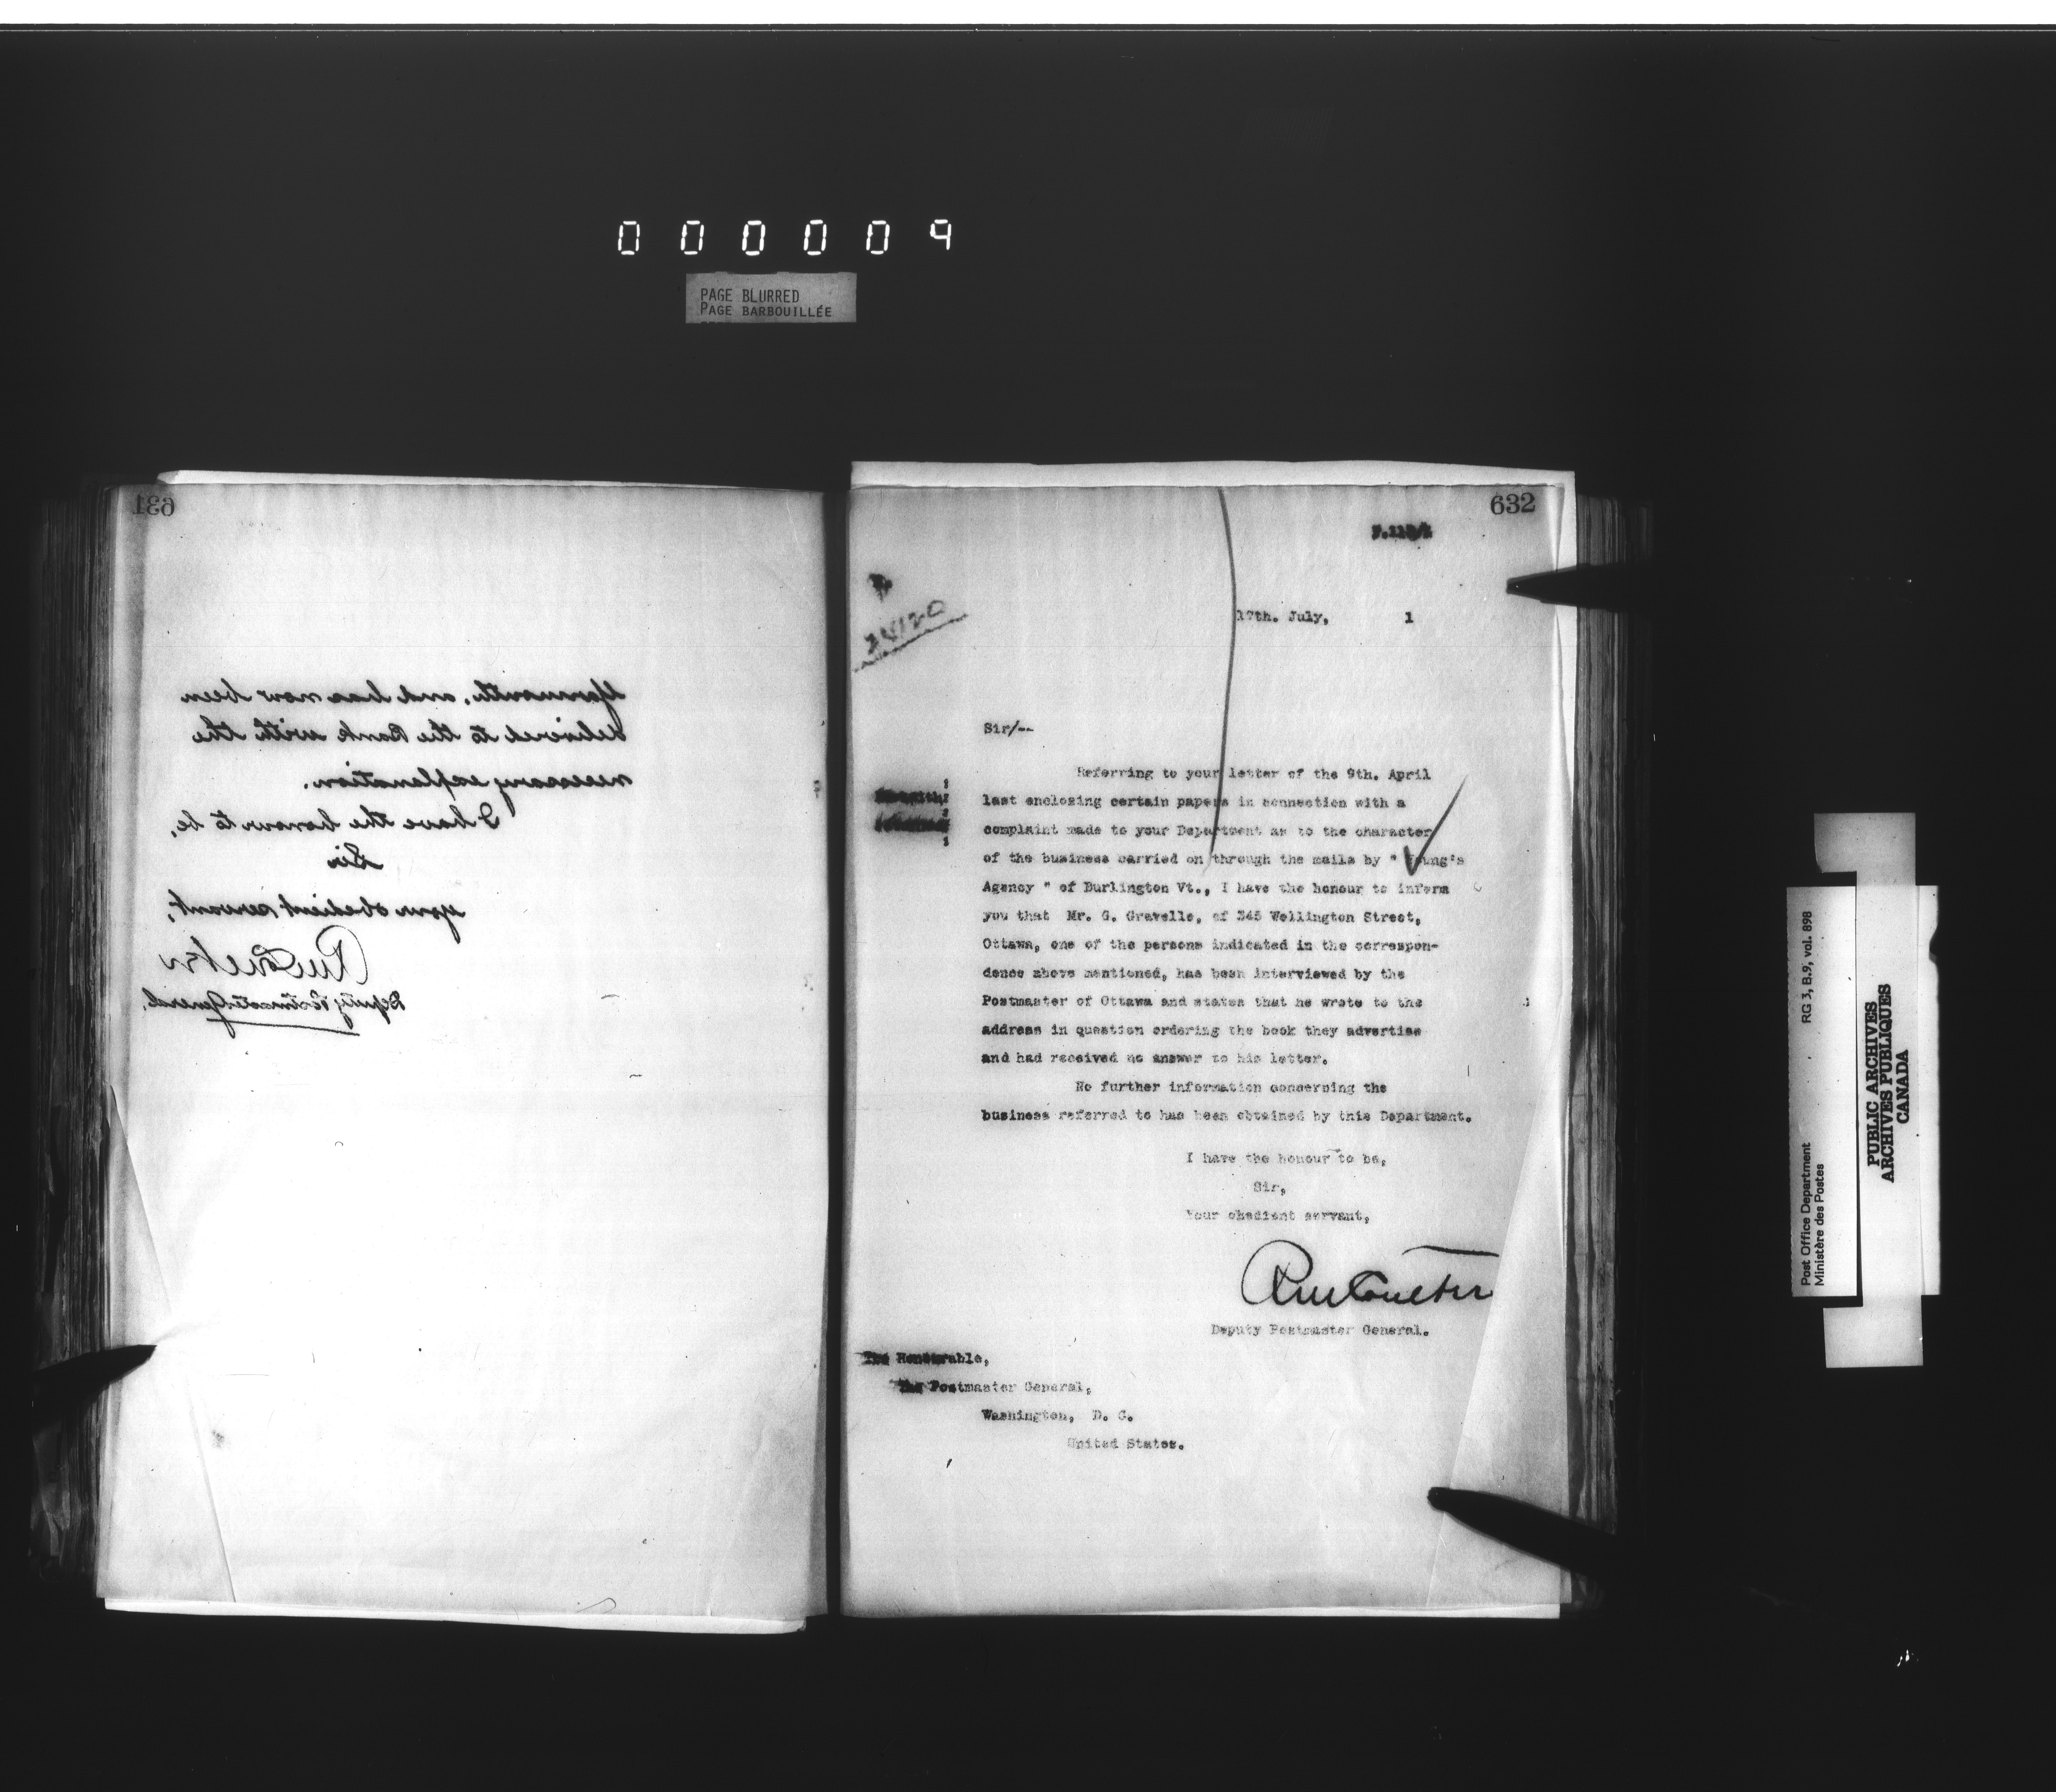 000009
PAGE BLURRED
PAGE BARBOUILLÉE
631
Yarmouth, and has now been
delivered to the Bank with the
necessary explanation.
I have the honour to be,
Sir
your obedient servant,
RM Coulter
Deputy Postmaster General.
632
34120
17th. July, 1
Sir/--
Referring to your letter of the 9th. April
last enclosing certain papers in connection with a
complaint made to your Department as to the character
of the business carried on through the mails by " Young's
Agency " of Burlington Vt., I have the honour to inform
you that Mr. G. Gravelle, of 345 Wellington Street,
Ottawa, one of the persons indicated in the correspon-
dence above mentioned, has been interviewed by the
Postmaster of Ottawa and states that he wrote to the
address in question ordering the book they advertise
and had received no answer to his letter.
No further information concerning the
business referred to has been obtained by this Department.
I have the honour to be,
Sir,
Your obedient servant,
RM Coulter
Deputy Postmaster General.
The Honourable,
The Postmaster General,
Washington, D. C.
United States.
Post Office Department
Ministère des Postes
RG 3, B.9, vol. 898
PUBLIC ARCHIVES
ARCHIVES PUBLIQUES
CANADA